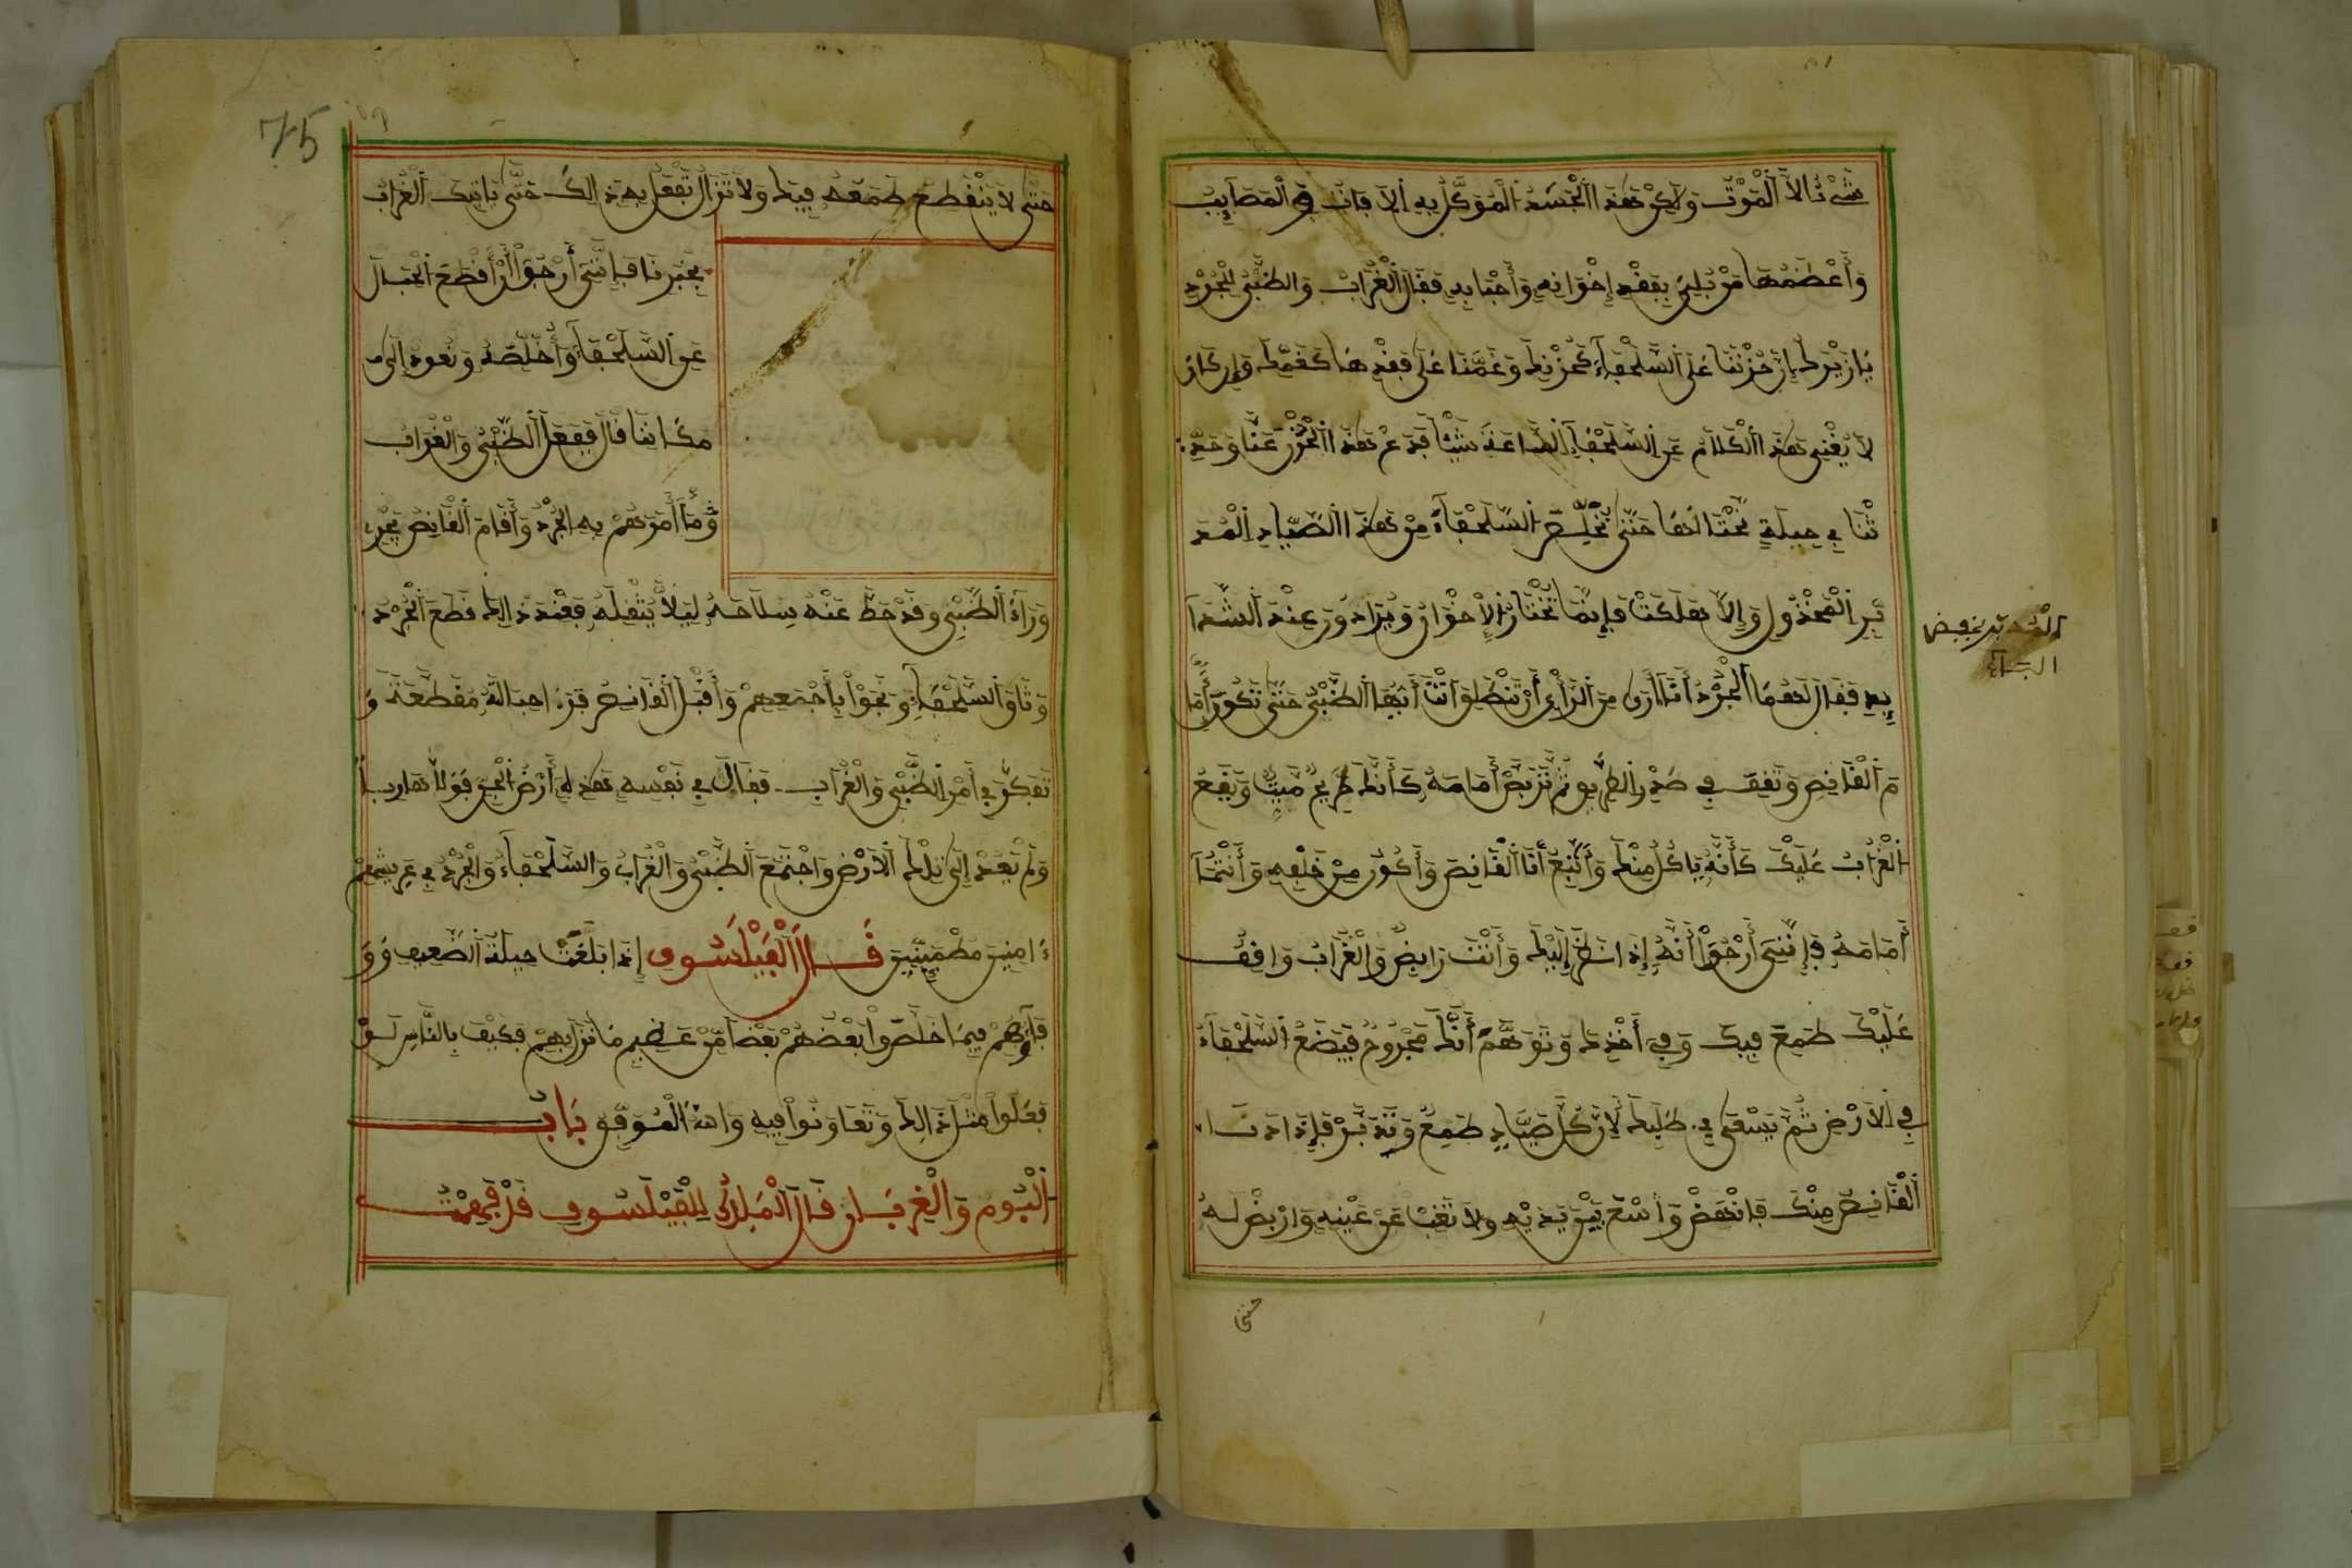 شَيْءٌ الاَّ الْمَوْتُ وَلَكِنْ هَذَا الْجَسَدُ الْمُوَكَّلُ بِهِ الآفَاتُ فِي الْمَصَايِبِ
وَأَعْظَمُهَا مَنْ بُلِيَ بِفَقْدِ إِخْوَانِهِ وَأَحْبَابِهِ فَقَالَ الْغُرَابُ وَالظَّبْيُ لِلْجُرْدِ
يَازَيْرَكُ إِنَّ حُزْنَنَا عَلَى السُّلَحْفَاءِ كَحُزْنِكَ وَغَمَّنَا عَلَى فَقْدِهَا كَغَمِّكَ وَإِن كَانَ
لاَ يُغْنِي هَذَا الْكَلاَمُ عَنِ السُّلَحْفَاءِ السَّاعَةَ شَيْئًا فَدَعْ هَذَا الْحُزْنَ عَنَّا وَحَدِّ
ثْنَا فِي حِيلَةٍ نَحْتَالُهَا حَتَّى نُخَلِّصَ السُّلَحْفَاءَ مِنْ هَذَا الصَّيَّادِ الْمُدَ
بِّرِ الْمَخْذُولِ وَإِلاَّ هَلَكَتْ فَإِنَّمَا تُخْتَارُ الإِخْوَانُ وَيُرَادُونَ عِنْدَ الشَّدَا
يِدِ فَقَالَ لَهُمَا الْجُرْدُ أَنَا أَرَى مِنَ الرَّأْيِ أَنْ تَنْطَلِقَ أَنْتَ أَيُّهَا الظَّبْيُ حَتَّى تَكُونَ أَمَا
مَ الْقَانِصِ وَتَقِفَ فِي صَدْرِ الطَّرِيقِ ثُمَّ تَرْبِضَ أَمَامَهُ كَأَنَّكَ طَرِيحٌ مَيِّتٌ وَيَقَعُ
الْغُرَابُ عَلَيْكَ كَأَنَّهُ يَاكُلُ مِنْكَ وَأَتْبَعُ أَنَا الْقَانِصَ وَأَكُونُ مِنْ خَلْفِهِ وَأَنْتُمَا
أَمَامَهُ فَإِنَّنِي أَرْجُوا أَنَّهُ إِذَا نَظَرَ إِلَيْكَ وَأَنْتَ رَابِضٌ وَالْغُرَابُ وَاقِفٌ
عَلَيْكَ طَمِعَ فِيكَ وَفِي أَخْذِكَ وَتَوَهَّمَ أَنَّكَ مَجْرُوحٌ فَيَضَعُ السُّلَحْفَاءَ
فِي الاَرْضِ ثُمَّ يَسْعَى فِي طَلَبِكَ لِأَنَّ كُلَّ صَيَّادٍ طَمِعٌ وَتَدَبَّرْ فَإِذَا دَنَا
الْقَانِصُ مِنْكَ فَانْهَضْ وَاسْعَ بَيْنَ يَدَيْهِ وَلاَ تَغِبْ عَنْ عَيْنِهِ وَارْبِضْ لَهُ
حتى
الْمُدَبِّر بخفض
البـاء
75
حَتَّى لاَ يَنْقَطِعَ طَمَعُهُ فِيكَ وَلاَ تَزَالُ تَفْعَلُ بِهِ ذَالِكَ حَتَّى يَاتِيَكَ الْغُرَابُ
بِخَبَرِنَا فَإِنَّنِي أَرْجُوا أَنْ أَقْطَعَ الْحِبَالَ
عَنِ السُّلَحْفَاةِ وَأُخَلِّصَهُ وَنَعُودُ إِلَى
مَكَانِنَا قَالَ فَفَعَلَ الظَّبْيُ وَالْغُرَابُ
مَا أَمَرَهُمْ بِهِ الْجُرْدُ وَأَقَامَ الْقَانِصُ يَجْرِي
وَرَاءَ الظَّبْيِ وَقَدْ حَطَّ عَنْهُ سِلاَحَهُ لِيَلاَّ يُثْقِلَهُ فَعِنْدَ ذَالِكَ قَطَعَ الْجُرْدُ
وَثَاقَ السُّلَحْفَاءِ وَنَجَوْا بِأَجْمَعِهِمْ وَأَقْبَلَ الْقَانِصُ فَرَءَا حِبَالَهُ مُقَطَّعَةً وَ
تَفَكَّرَ فِي أَمْرِ الظَّبْيِ وَالْغُرَابِ فَقَالَ فِي نَفْسِهِ هَذِهِ أَرْضُ الْجِنِّ فَوَلَّا هَارِباً
وَلَمْ يَعُدْ إِلَى تِلْكَ الاَرْضِ وَاجْتَمَعَ الظَّبْيُ وَالْغُرَابُ وَالسُّلَحْفَاءُ وَالْجُرْدُ فِي عَرِيشِهِمْ
ءَامِنِينَ مُطْمَيِنِّينَ قَـــالَ الْفَيْلَسُوفُ إِذَا بَلَغَتْ حِيلَةُ الضَّعِيفِ وَوَ
فَاؤُهُمْ فِيمَا خَلَّصُوا بَعْضَهُمْ بَعْضًا مِّنْ عَظِيمِ مَا نَزَلَ بِهِمْ فَكَيْفَ بِالنَّاسِ لَوْ
فَعَلُوا مِثْلَ ذَالِكَ وَتَعَاوَنُوا فِيهِ وَاللهُ الْمُوَفِّقُ بَابُ
الْبُومِ وَالْغِرْبَانِ قَالَ الْمَلِكُ لِلْفَيْلَسُوفِ قَدْ فَهِمْتُ